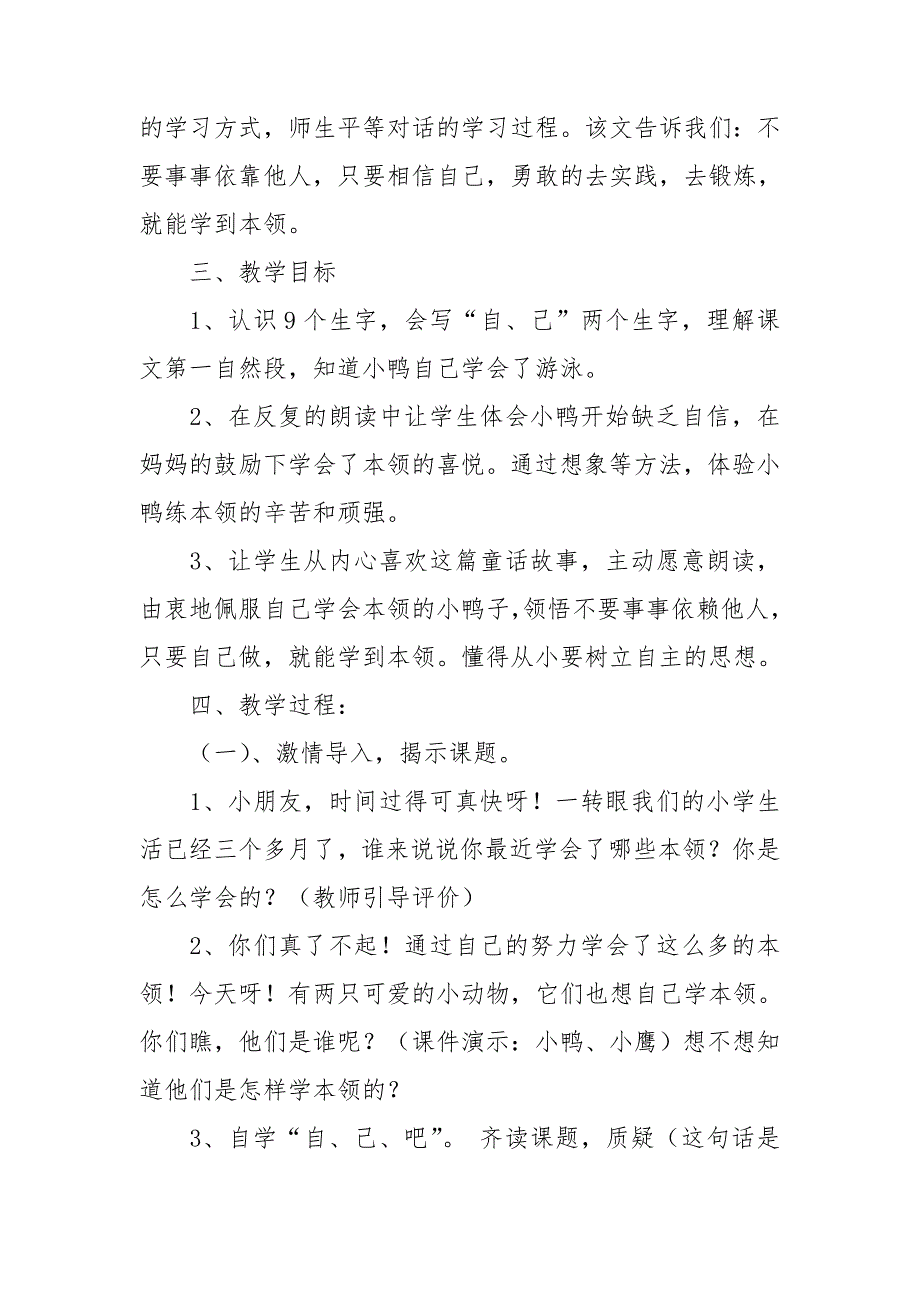 的学习方式，师生平等对话的学习过程。该文告诉我们：不
要事事依靠他人，只要相信自己，勇敢的去实践，去锻炼，
就能学到本领。
三、教学目标
1、认识9个生字，会写“自、己”两个生字，理解课
文第一自然段，知道小鸭自己学会了游泳。
2、在反复的朗读中让学生体会小鸭开始缺乏自信，在
妈妈的鼓励下学会了本领的喜悦。通过想象等方法，体验小
鸭练本领的辛苦和顽强。
3、让学生从内心喜欢这篇童话故事，主动愿意朗读，
由衷地佩服自己学会本领的小鸭子，领悟不要事事依赖他人，
只要自己做，就能学到本领。懂得从小要树立自主的思想。
四、教学过程：
（一）、激情导入，揭示课题。
1、小朋友，时间过得可真快呀！一转眼我们的小学生
活已经三个多月了，谁来说说你最近学会了哪些本领？你是
怎么学会的？（教师引导评价）
2、你们真了不起！通过自己的努力学会了这么多的本
领！今天呀！有两只可爱的小动物，它们也想自己学本领。
你们瞧，他们是谁呢？（课件演示：小鸭、小鹰）想不想知
道他们是怎样学本领的？
3、自学“自、己、吧”。 齐读课题，质疑（这句话是